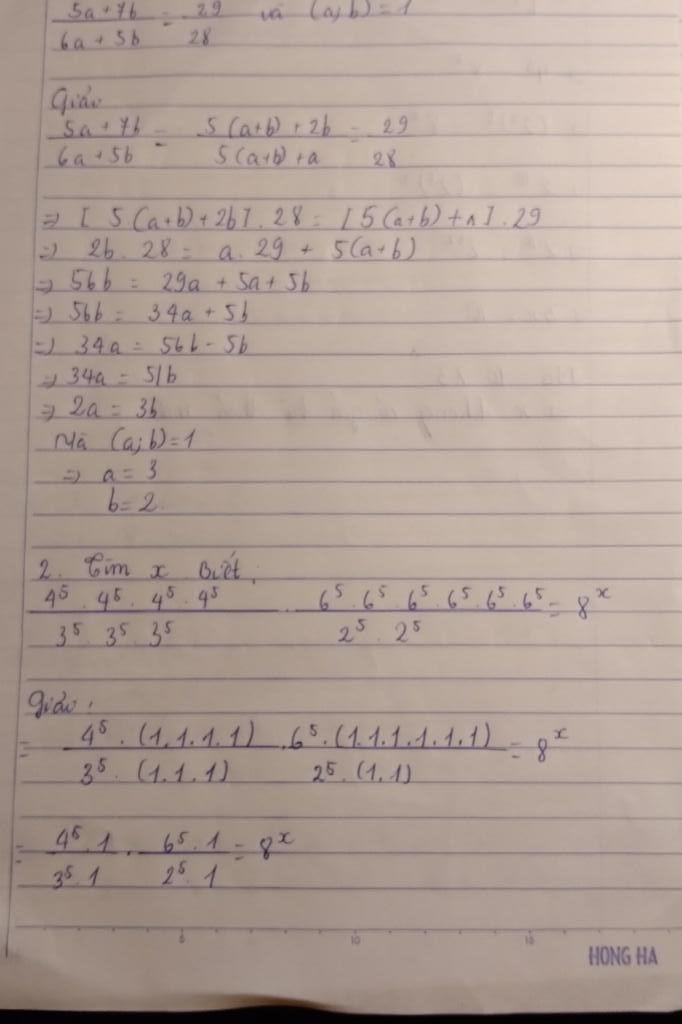 5a+7b / 6a+5b = 29 / 28 và (a;b)=1
Giải
5a+7b / 6a+5b = 5(a+b)+2b / 5(a+b)+a = 29 / 28
=> [ 5(a+b)+2b ] . 28 = [ 5(a+b)+a ] . 29
=> 2b . 28 = a . 29 + 5(a+b)
=> 56b = 29a + 5a + 5b
=> 56b = 34a + 5b
=> 34a = 56b - 5b
=> 34a = 51b
=> 2a = 3b
Mà (a;b)=1
=> a = 3
b = 2
2. Tìm x biết:
4⁵ . 4⁵ . 4⁵ . 4⁵ / 3⁵ . 3⁵ . 3⁵ . 6⁵ . 6⁵ . 6⁵ . 6⁵ . 6⁵ . 6⁵ / 2⁵ . 2⁵ = 8ˣ
Giải:
= 4⁵ . (1.1.1.1) / 3⁵ . (1.1.1) . 6⁵ . (1.1.1.1.1.1) / 2⁵ . (1.1) = 8ˣ
= 4⁵ . 1 / 3⁵ . 1 . 6⁵ . 1 / 2⁵ . 1 = 8ˣ
5 10 15
HONG HA